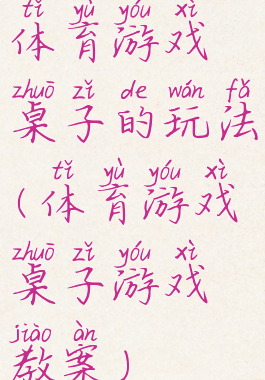 tǐ yù yóu xì
体育游戏
zhuō zǐ de wán fǎ
桌子的玩法
tǐ yù yóu xì
(体育游戏
zhuō zǐ yóu xì
桌子游戏
jiào àn
教案)